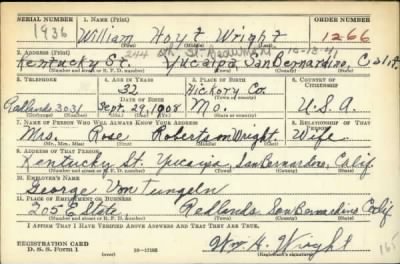 SERIAL NUMBER 1. NAME (Print) ORDER NUMBER
1936 William Hoyt Wright 1266
(First) (Middle) (Last)
2. ADDRESS (Print) 10-13-41
Kentucky St. Yucaipa, San Bernardino, Calif.
(Number and street or R. F. D. number) (Town) (County) (State)
3. TELEPHONE 4. AGE IN YEARS 5. PLACE OF BIRTH 6. COUNTRY OF CITIZENSHIP
32 Hickory Co.
DATE OF BIRTH (Town or county)
Redlands 3031 Sept. 29, 1908 Mo. U.S.A.
(Exchange) (Number) (Mo.) (Day) (Yr.) (State or country)
7. NAME OF PERSON WHO WILL ALWAYS KNOW YOUR ADDRESS 8. RELATIONSHIP OF THAT PERSON
Mrs. Rose Robertson Wright, Wife
(Mr., Mrs., Miss) (First) (Middle) (Last)
9. ADDRESS OF THAT PERSON
Kentucky St. Yucaipa, San Bernardino, Calif
(Number and street or R. F. D. number) (Town) (County) (State)
10. EMPLOYER'S NAME
George Von Tungeln
11. PLACE OF EMPLOYMENT OR BUSINESS
205 E State Redlands San Bernardino Calif
(Number and street or R. F. D. number) (Town) (County) (State)
I AFFIRM THAT I HAVE VERIFIED ABOVE ANSWERS AND THAT THEY ARE TRUE.
REGISTRATION CARD
D. S. S. Form 1 Wm H. Wright 165
(over) (Registrant's signature)